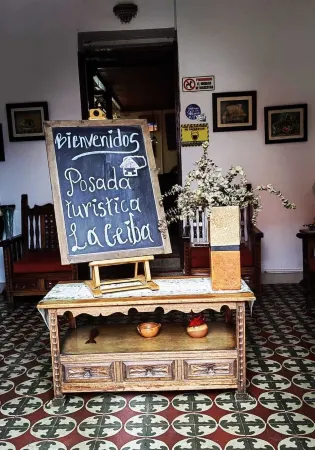 Bienvenidos
Posada
Turística
La Ceiba